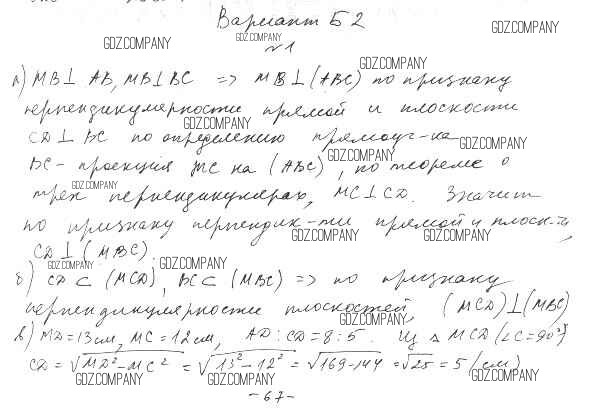 Вариант Б2
GDZ.COMPANY GDZ.COMPANY GDZ.COMPANY
№1
GDZ.COMPANY
а) MB⊥AB, MB⊥BC => MB⊥(ABC) по признаку
перпендикулярности прямой и плоскости
GDZ.COMPANY
CD⊥BC по определению прямоуг-ка
GDZ.COMPANY
BC - проекция MC на (ABC), по теореме о
GDZ.COMPANY
трех перпендикулярах, MC⊥CD. Значит
по признаку перпендик-ти прямой и плоск-ти
GDZ.COMPANY GDZ.COMPANY
CD⊥(MBC).
GDZ.COMPANY GDZ.COMPANY
б) CD⊂(MCD), BC⊂(MBC) => по признаку
перпендикулярности плоскостей, (MCD)⊥(MBC)
GDZ.COMPANY
в) MD=13см, MC=12см, AD:CD=8:5. Из △MCD (∠C=90°)
CD=√MD²-MC² = √13²-12² = √169-144 = √25 = 5 (см)
GDZ.COMPANY GDZ.COMPANY GDZ.COMPANY
-67-